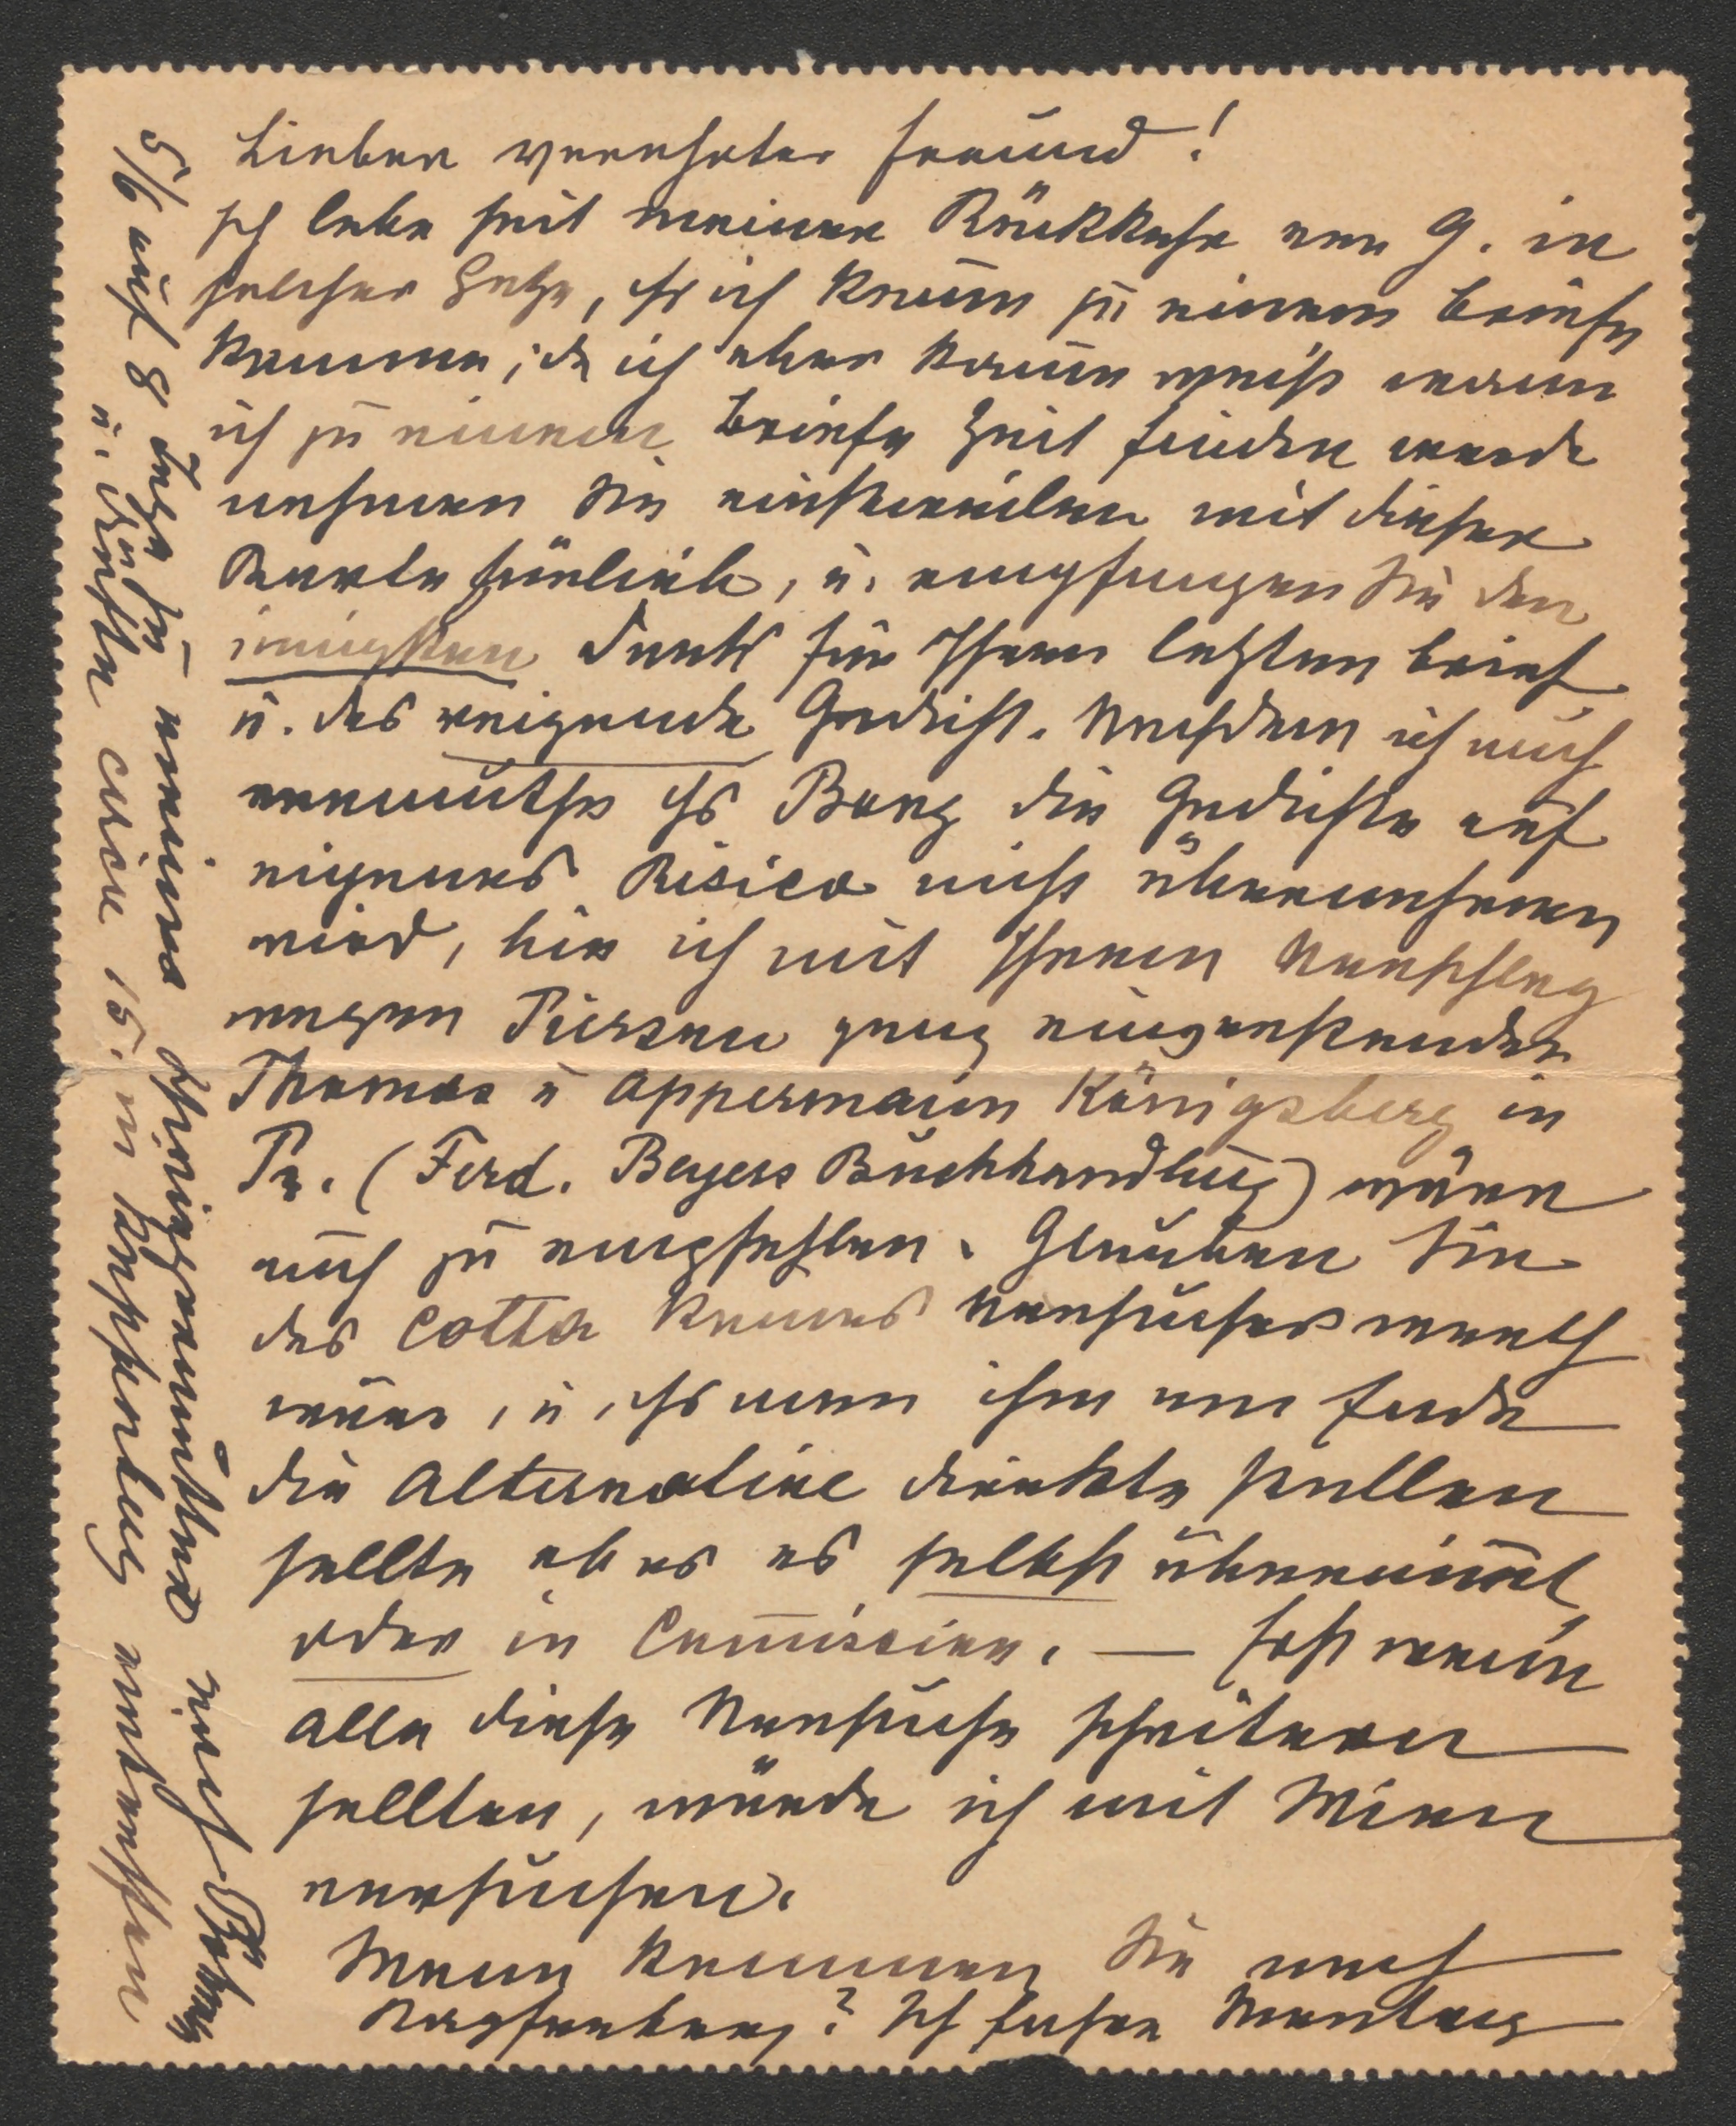 Lieber verehrter Freund!
Ich lebe seit meiner Rückkehr von G. in
solcher Hetze, dß ich kaum zu einem Briefe
komme; da ich aber kaum weiß wann
ich zu einem Briefe Zeit finden werde
nehmen Sie einstweilen mit dieser
Karte fürlieb, u. empfangen Sie den
innigsten Dank für Ihren letzten Brief
u. das reizende Gedicht. Nachdem ich auch
vermuthe dß Bong die Gedichte auf
eigenes Risico nicht übernehmen
wird, bin ich mit Ihrem Vorschlag
wegen Pierson ganz einverstanden
Thomas u Oppermann Königsberg in
Pr. (Ferd. Beyers Buchhandlung) wäre
auch zu empfehlen. Glauben Sie
das Cotta keines Versuches werth
wäre, u, dß man ihm am Ende
die Alternative direkte stellen
sollte ob er es selbst übernimmt
oder in Commission. — Erst wenn
alle diese Versuche scheitern
sollten, würde ich mit Wien
versuchen.
Wann kommen Sie nach
Kapfenberg? Ich fahre Montag
5/6 auf 8 Tage zu meiner Schwiegermutter nach
u. dürfte circa 15. in Kapfenberg eintreffen